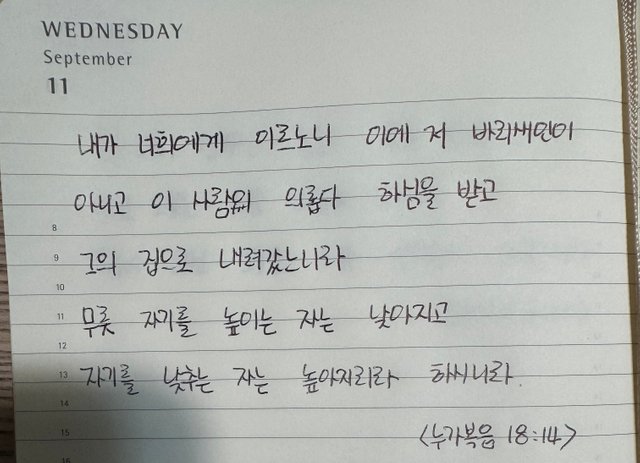 WEDNESDAY
September
11
내가 너희에게 이르노니 이에 저 바리새인이
아니고 이 사람이 의롭다 하심을 받고
8
9 그의 집으로 내려갔느니라
10
11 무릇 자기를 높이는 자는 낮아지고
12
13 자기를 낮추는 자는 높아지리라 하시니라.
14
15 <누가복음 18:14>